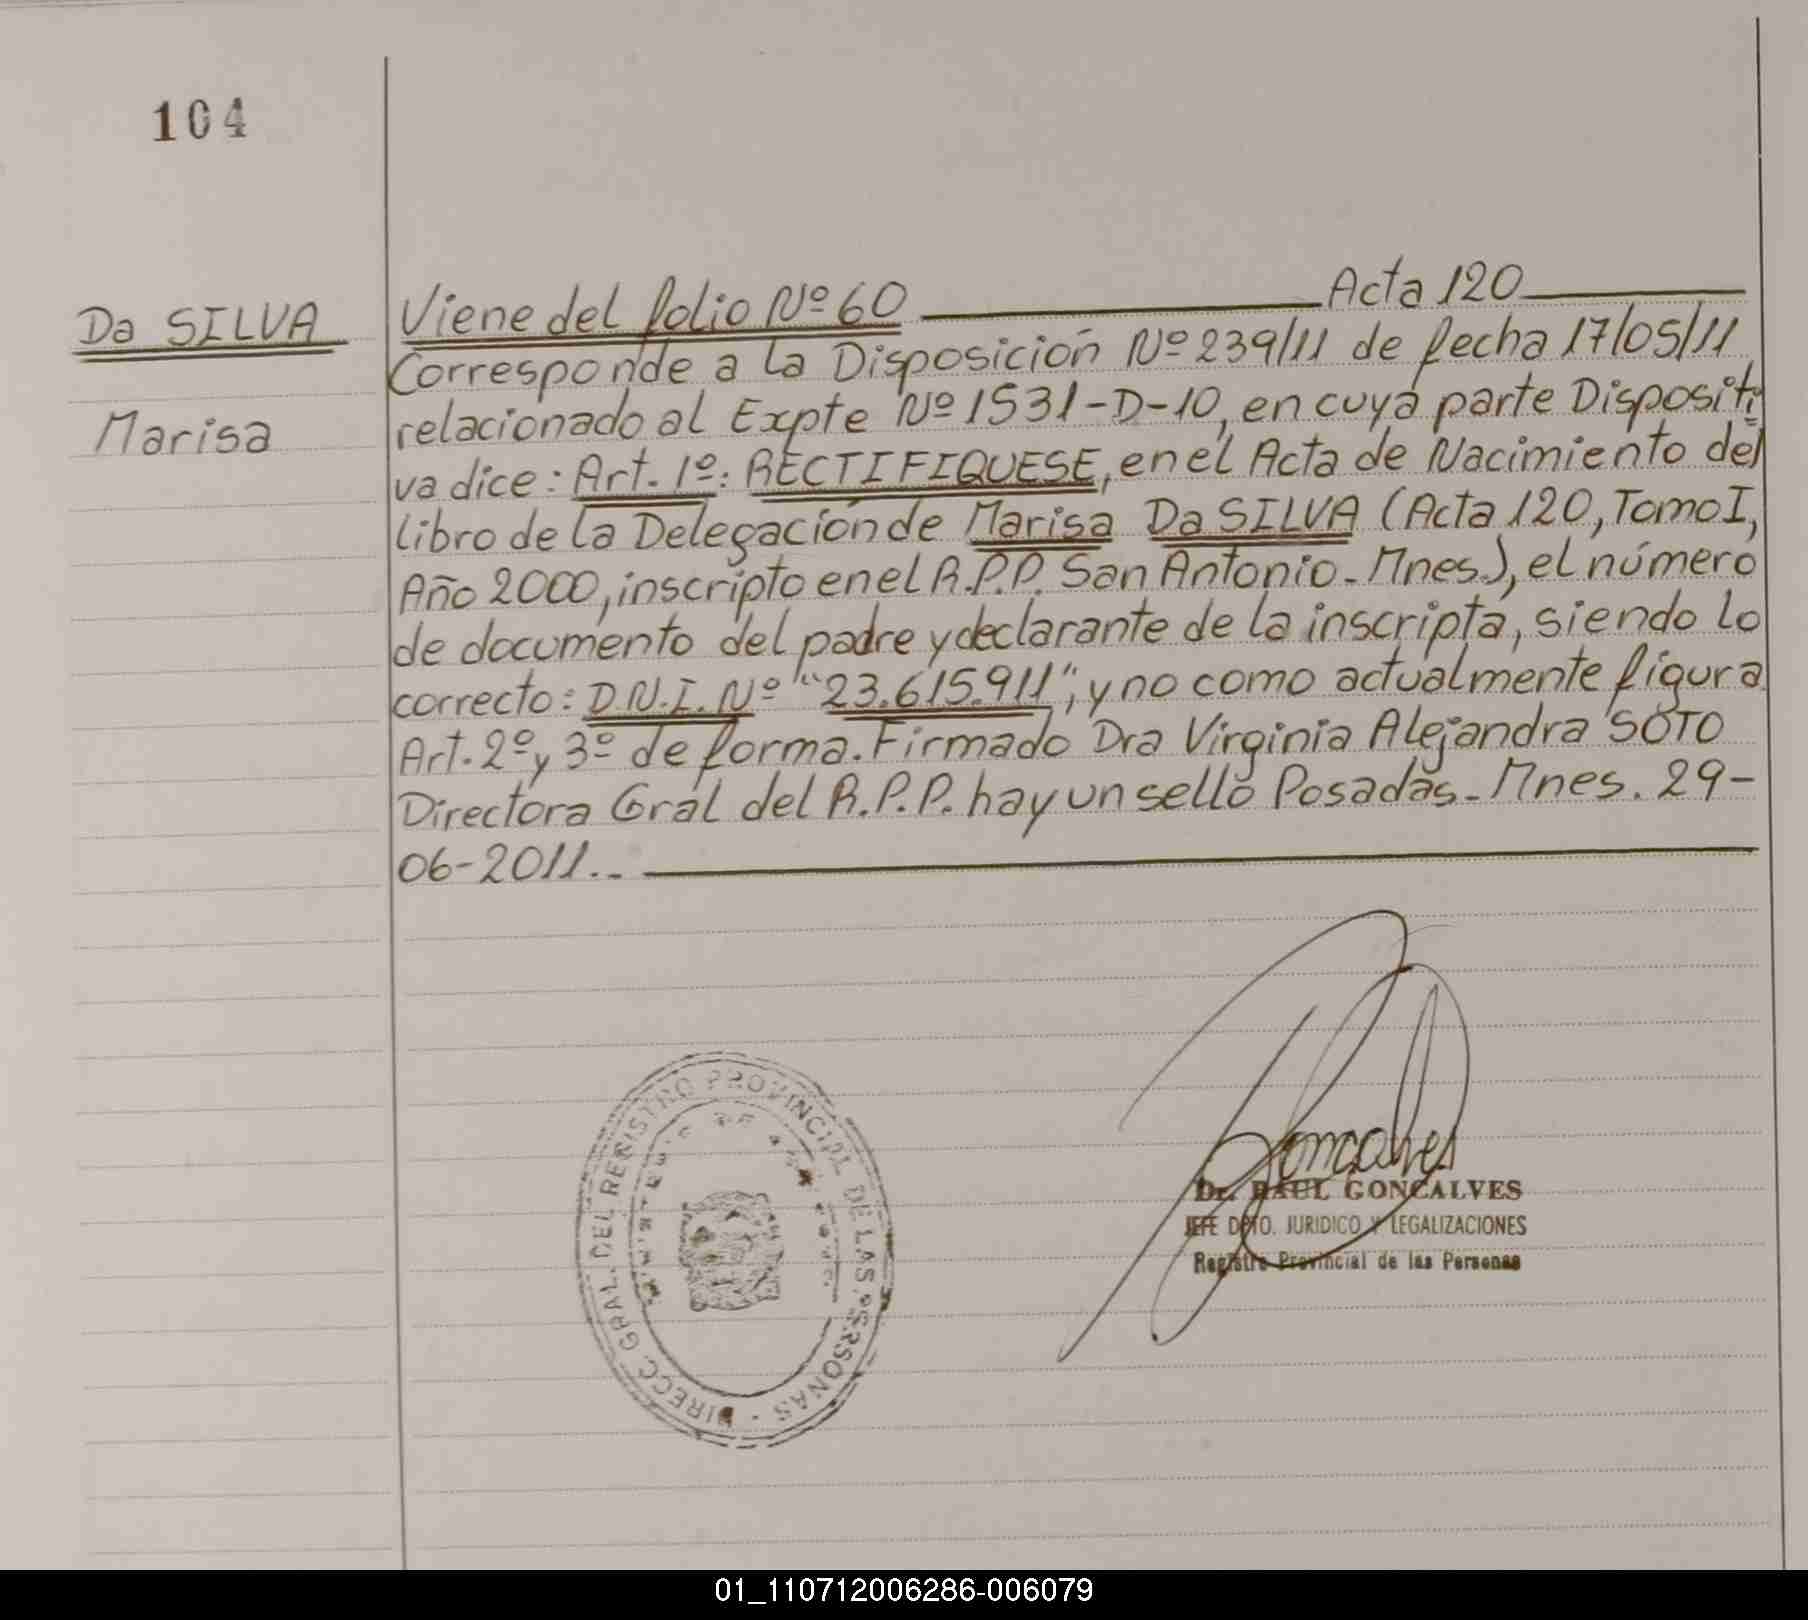 104
Da SILVA
Marisa
Viene del folio Nº 60 Acta 120
Corresponde a la Disposición Nº 239/11 de fecha 17/05/11
relacionado al Expte Nº 1531-D-10, en cuya parte Dispositi
va dice: Art. 1º: RECTIFIQUESE, en el Acta de Nacimiento del
libro de la Delegación de Marisa Da SILVA (Acta 120, Tomo I,
Año 2000, inscripto en el R.P.P. San Antonio - Mnes.), el número
de documento del padre y declarante de la inscripta, siendo lo
correcto: D.N.I. Nº "23.615.911", y no como actualmente figura
Art. 2º y 3º de forma. Firmado Dra Virginia Alejandra SOTO
Directora Gral del R.P.P. hay un sello Posadas - Mnes. 29-
06-2011..-
DIRECC. GRAL. DEL REGISTRO PROVINCIAL DE LAS PERSONAS
Goncalves
Dr. RAUL GONCALVES
JEFE DPTO. JURIDICO Y LEGALIZACIONES
Registro Provincial de las Personas
01_110712006286-006079